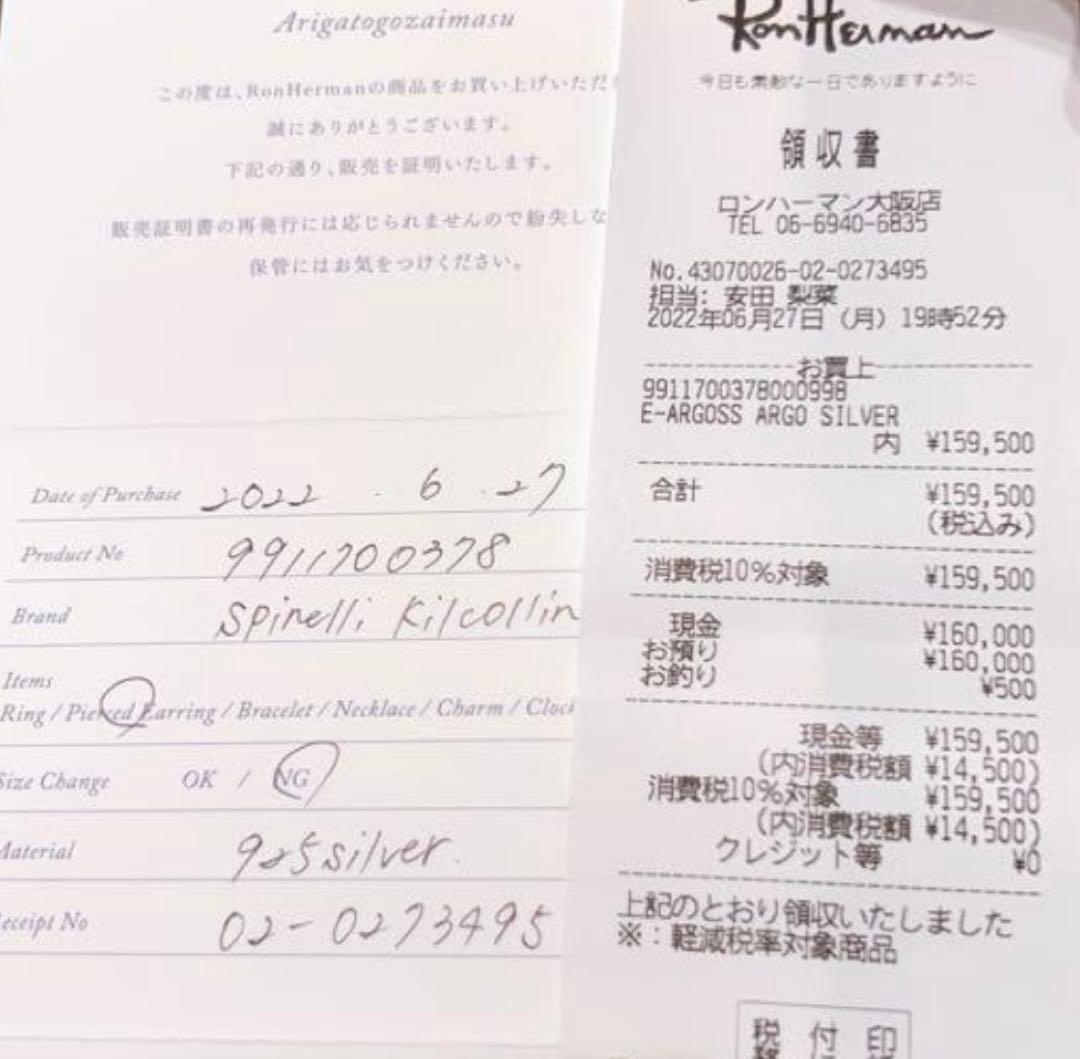 Arigatogozaimasu
この度は、RonHermanの商品をお買い上げいただ
誠にありがとうございます。
下記の通り、販売を証明いたします。
販売証明書の再発行には応じられませんので紛失しな
保管にはお気をつけください。
Date of Purchase 2022 . 6 . 27
Product No 9911700378
Brand Spinelli Kilcollin
Items
Ring / Pierced Earring / Bracelet / Necklace / Charm / Clock
Size Change OK / NG
Material 925 silver.
Receipt No 02-0273495
Ron Herman
今日も素敵な一日でありますように
領収書
ロンハーマン大阪店
TEL 06-6940-6835
No.43070026-02-0273495
担当: 安田 梨菜
2022年06月27日 (月) 19時52分
お買上
9911700378000998
E-ARGOSS ARGO SILVER
内 ¥159,500
合計 ¥159,500
(税込み)
消費税10%対象 ¥159,500
現金 ¥160,000
お預り ¥160,000
お釣り ¥500
現金等 ¥159,500
(内消費税額 ¥14,500)
消費税10%対象 ¥159,500
(内消費税額 ¥14,500)
クレジット等 ¥0
上記のとおり領収いたしました
※:軽減税率対象商品
税 付 印